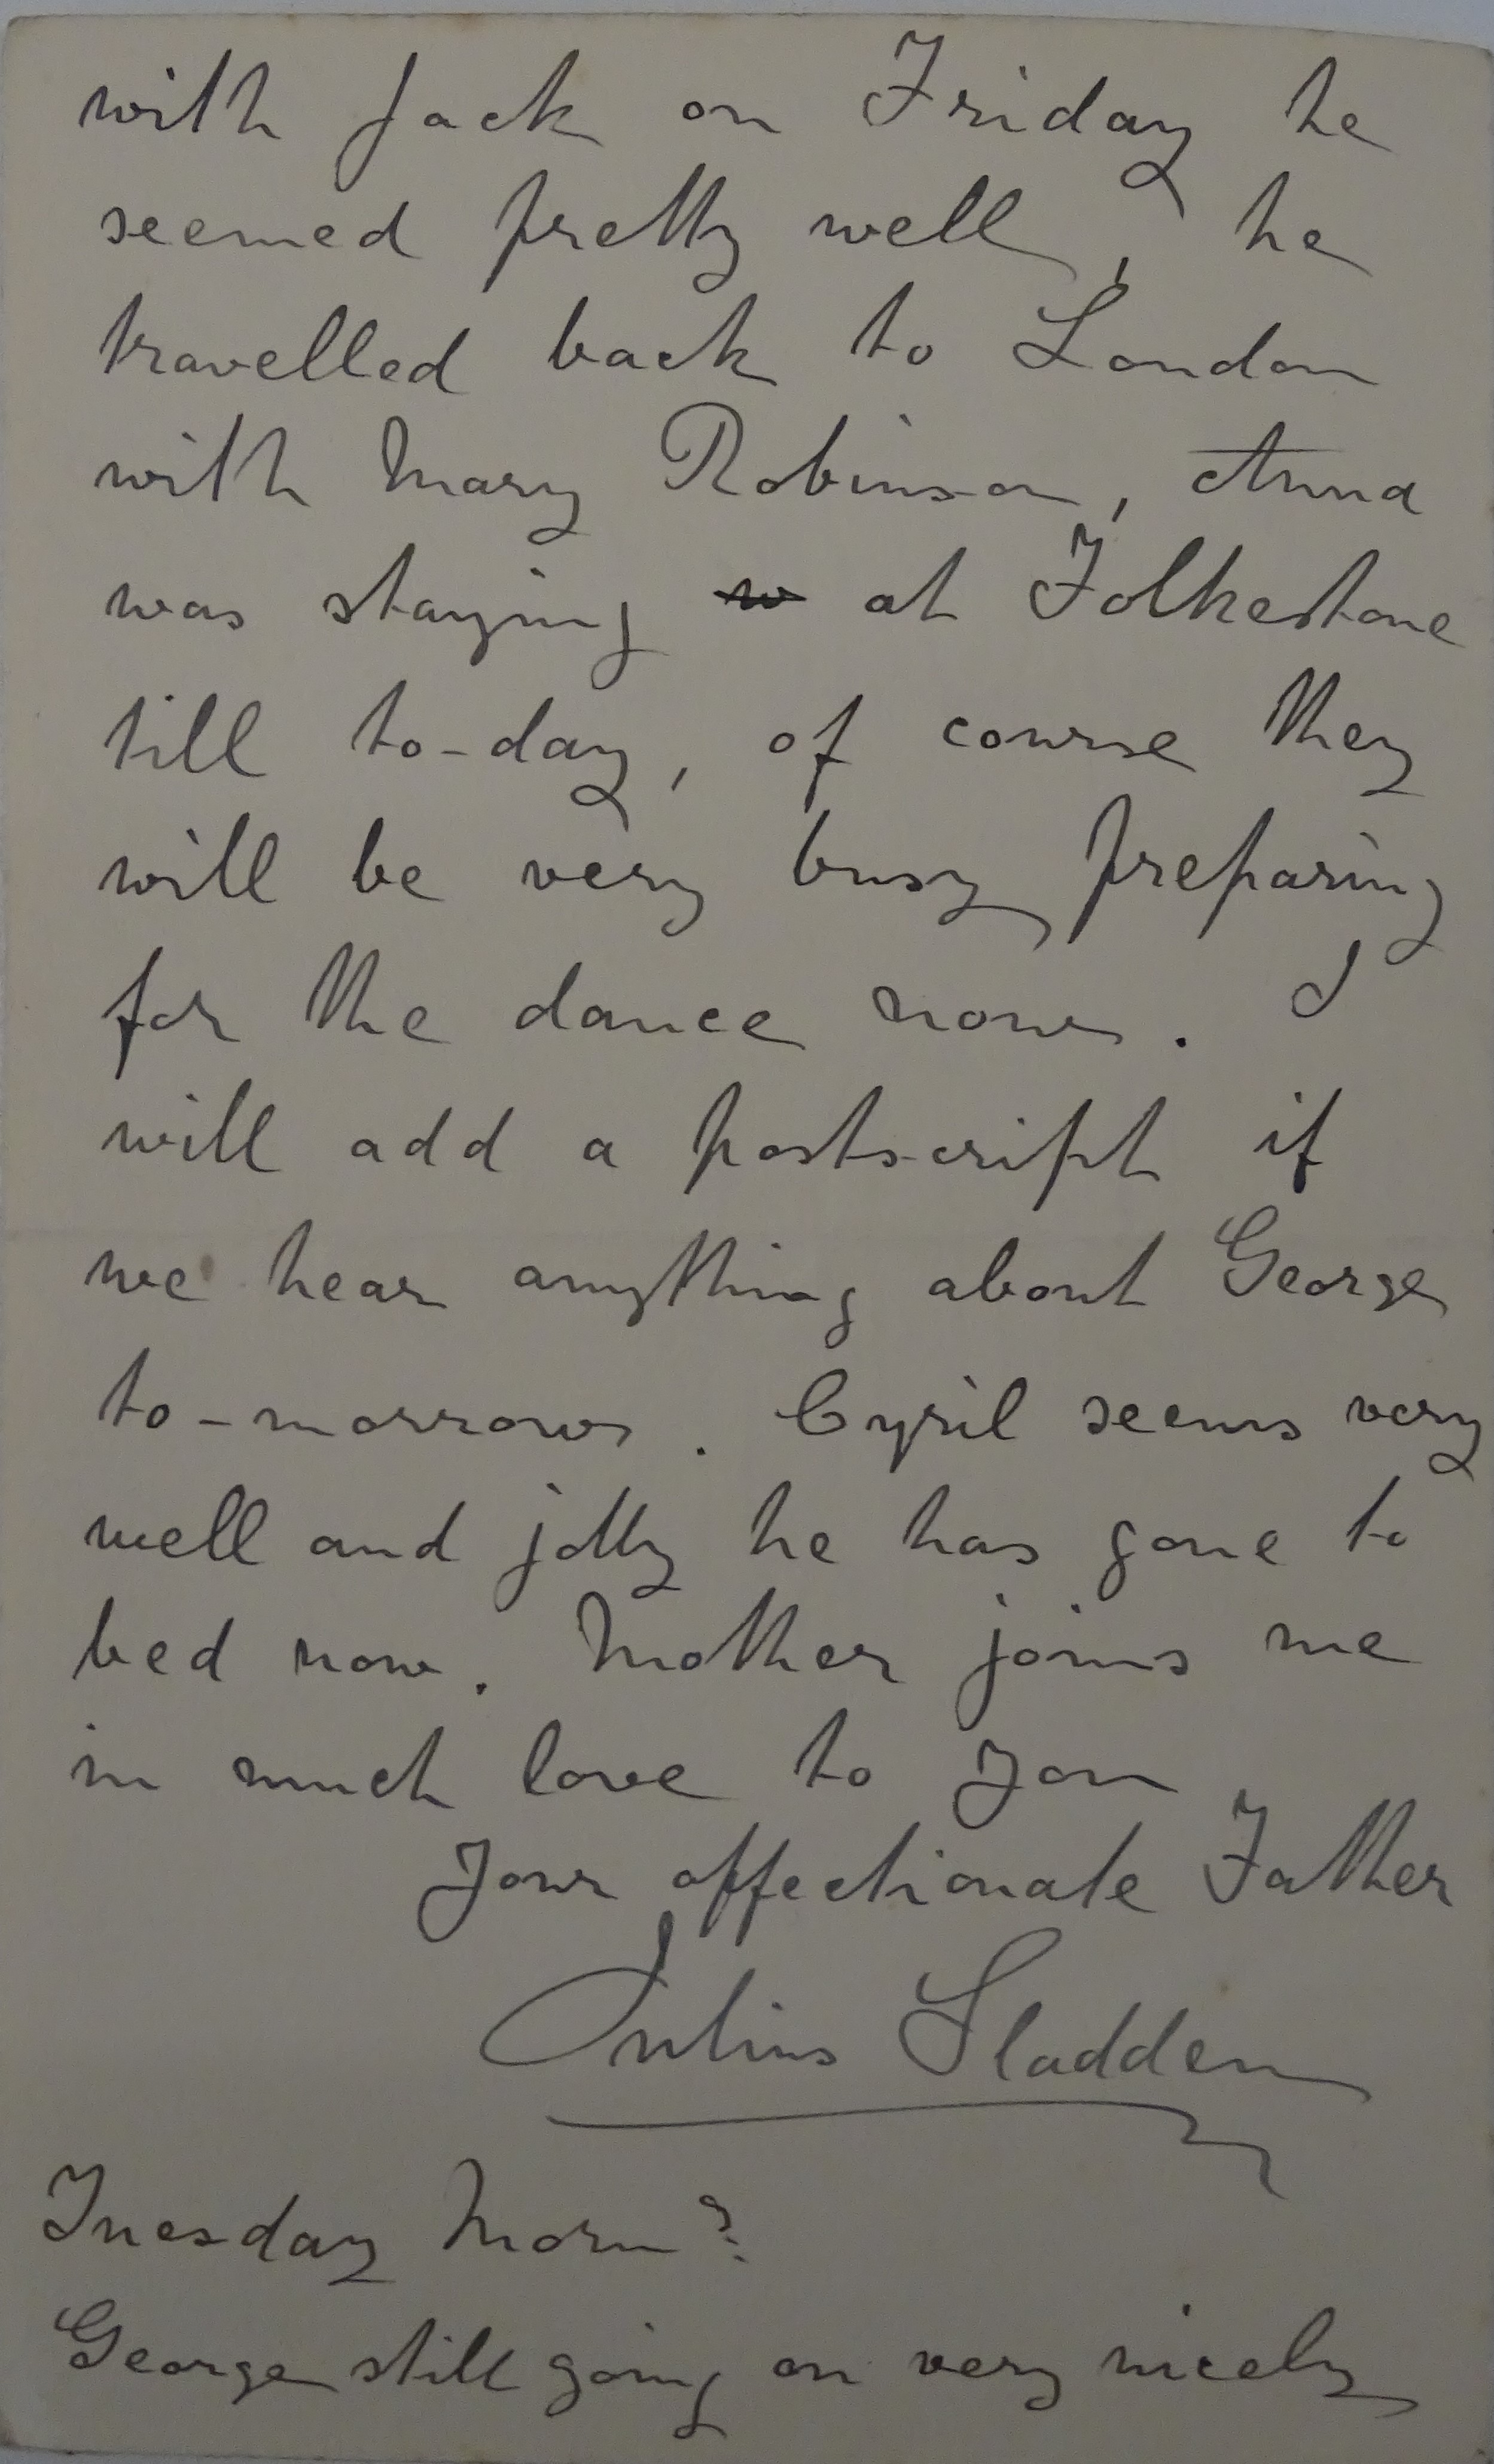 with Jack on Friday he
seemed pretty well, he
travelled back to London
with Mary Robinson, Anna
was staying w at Folkestone
till to-day, of course they
will be very busy preparing
for the dance now. I
will add a postscript if
we hear anything about George
to-morrow. Cyril seems very
well and jolly he has gone to
bed now. Mother joins me
in much love to you
Your affectionate Father
Julius Sladden
Tuesday Morng
George still going on very nicely